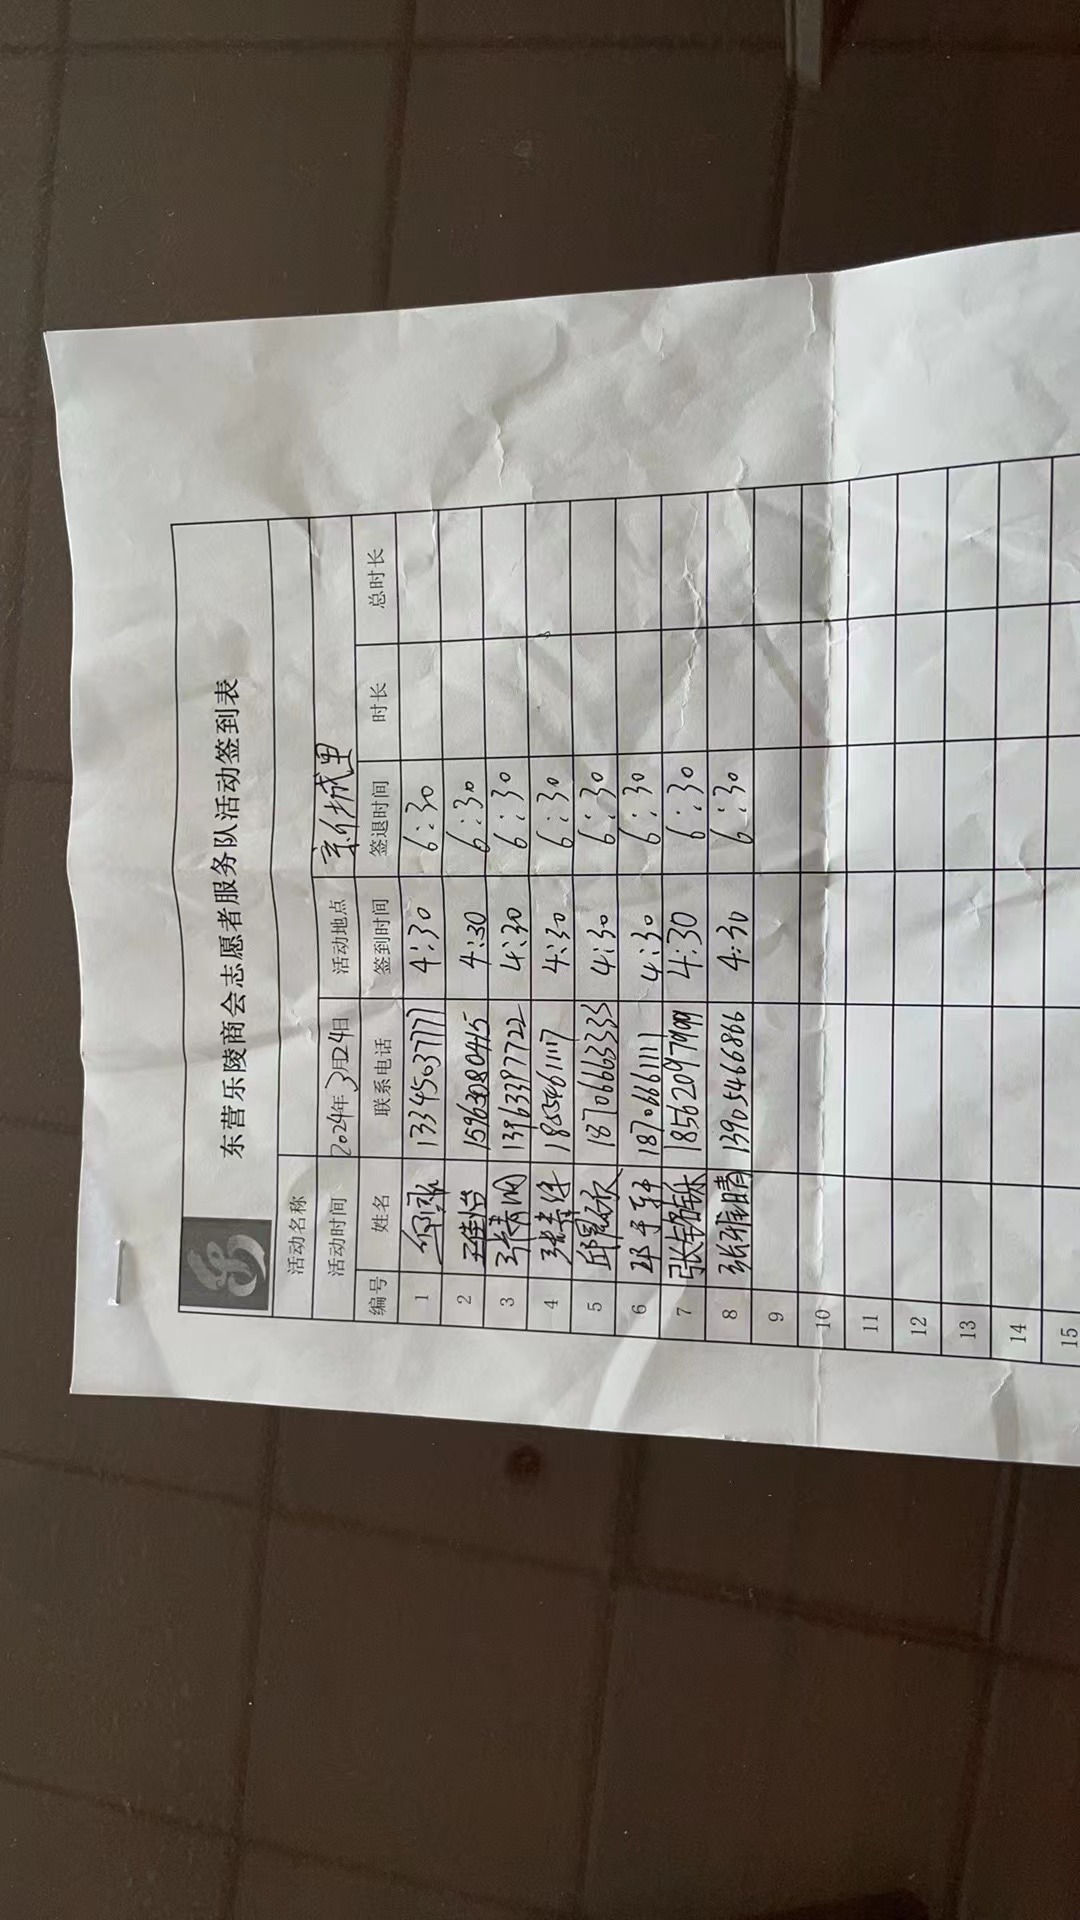 东营乐陵商会志愿者服务队活动签到表
活动名称
活动时间 2024年3月24日 活动地点
编号 姓名 联系电话 签到时间 签退时间 时长 总时长
1 13345037771 4:30 6:30
2 15963080445 4:30 6:30
3 13963397722 4:30 6:30
4 18554611117 4:30 6:30
5 18706663333 4:30 6:30
6 18706661111 4:30 6:30
7 张铭铄 18562097999 4:30 6:30
8 张雅晴 13905466866 4:30 6:30
9
10
11
12
13
14
15